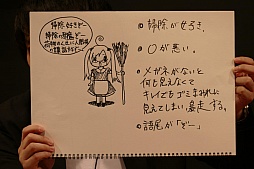 掃除好きどー
掃除の邪魔どー
掃除が好き。
口が悪い。
メガネがないと
何も見えなくて
キレイでもゴミまみれに
見えてしまい、暴走する。
語尾が「どー」